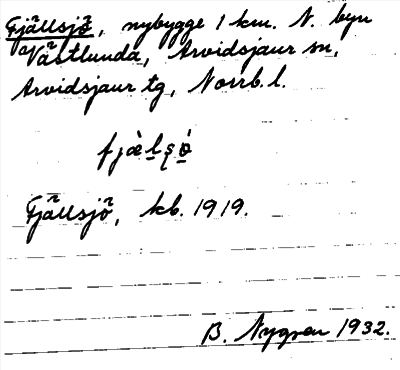 Fjällsjö, nybygge 1 km. N. byn
Västlunda, Arvidsjaur sn,
Arvidsjaur tg, Norrb. l.
Fjällsjö, kb. 1919.
B. Nygren 1932.